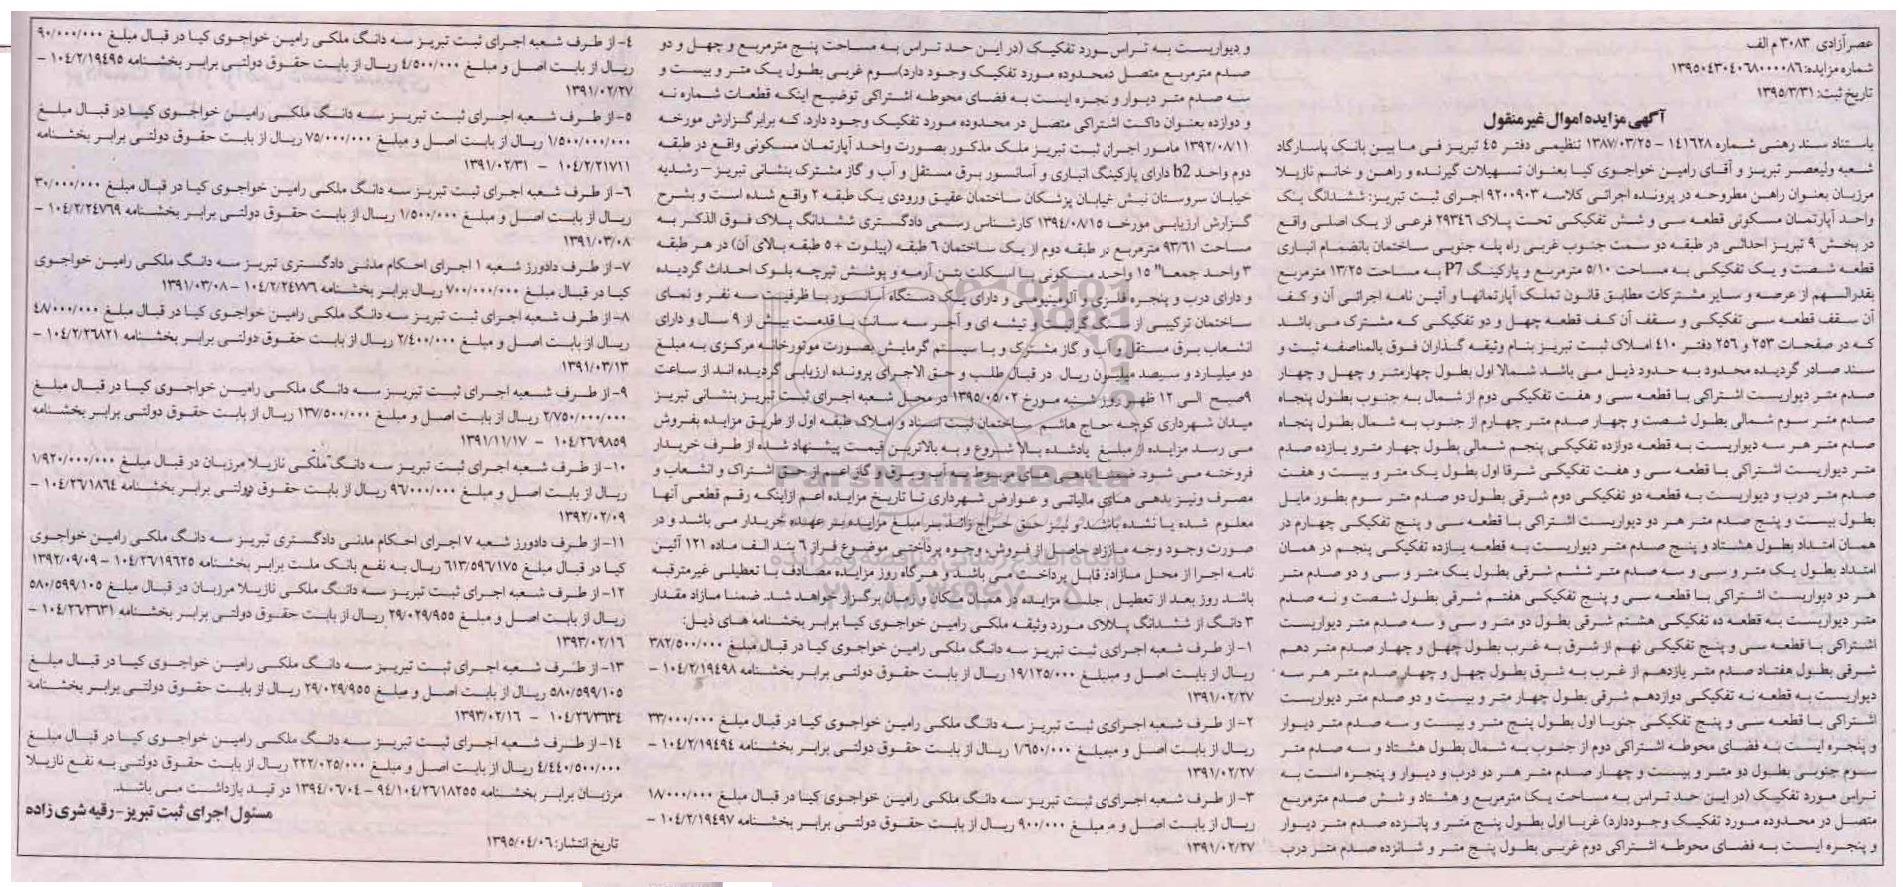 عصرآزادی ۳۰۸۳ م الف
شماره مزایده: ۱۳۹۵۰۴۳۰۴۰۶۸۰۰۰۰۸۶
تاریخ ثبت: ۱۳۹۵/۳/۳۱
آگهی مزایده اموال غیرمنقول
باستناد سند رهنی شماره ۱۴۱۶۲۸ - ۱۳۸۷/۰۳/۲۵ تنظیمی دفتر ۴۵ تبریز فی ما بین بانک پاسارگاد
شعبه ولیعصر تبریز و آقای رامین خواجوی کیا بعنوان تسهیلات گیرنده و راهن و خانم نازیلا
مرزبان بعنوان راهن مطروحه در پرونده اجرائی کلاسه ۹۲۰۰۹۰۳ اجرای ثبت تبریز: ششدانگ یک
واحد آپارتمان مسکونی قطعه سی و شش تفکیکی تحت پلاک ۲۹۳۴۶ فرعی از یک اصلی واقع
در بخش ۹ تبریز احداثی در طبقه دو سمت جنوب غربی راه پله جنوبی ساختمان بانضمام انباری
قطعه شصت و یک تفکیکی به مساحت ۵/۱۰ مترمربع و پارکینگ P7 به مساحت ۱۳/۲۵ مترمربع
بقدرالسهم از عرصه و سایر مشترکات مطابق قانون تملک آپارتمانها و آئین نامه اجرائی آن و کف
آن سقف قطعه سی تفکیکی و سقف آن کف قطعه چهل و دو تفکیکی که مشترک می باشد
که در صفحات ۲۵۳ و ۲۵۶ دفتر ۴۱۰ املاک ثبت تبریز بنام وثیقه گذاران فوق بالمناصفه ثبت و
سند صادر گردیده محدود به حدود ذیل می باشد شمالا اول بطول چهارمتر و چهل و چهار
صدم متر دیواریست اشتراکی با قطعه سی و هفت تفکیکی دوم از شمال به جنوب بطول پنجاه
صدم متر سوم شمالی بطول شصت و چهار صدم متر چهارم از جنوب به شمال بطول پنجاه
صدم متر هر سه دیواریست به قطعه دوازده تفکیکی پنجم شمالی بطول چهار مترو یازده صدم
متر دیواریست اشتراکی با قطعه سی و هفت تفکیکی شرقا اول بطول یک متر و بیست و هفت
صدم متر درب و دیواریست به قطعه دو تفکیکی دوم شرقی بطول دو صدم متر سوم بطور مایل
بطول بیست و پنج صدم متر هر دو دیواریست اشتراکی با قطعه سی و پنج تفکیکی چهارم در
همان امتداد بطول هشتاد و پنج صدم متر دیواریست به قطعه یازده تفکیکی پنجم در همان
امتداد بطول یک متر و سی و سه صدم متر ششم شرقی بطول یک متر و سی و دو صدم متر
هر دو دیواریست اشتراکی با قطعه سی و پنج تفکیکی هفتم شرقی بطول شصت و نه صدم
متر دیواریست به قطعه ده تفکیکی هشتم شرقی بطول دو متر و سی و سه صدم متر دیواریست
اشتراکی با قطعه سی و پنج تفکیکی نهم از شرق به غرب بطول چهل و چهار صدم متر دهم
شرقی بطول هفتاد صدم متر یازدهم از غرب به شرق بطول چهل و چهار صدم متر هر سه
دیواریست به قطعه نه تفکیکی دوازدهم شرقی بطول چهار متر و بیست و دو صدم متر دیواریست
اشتراکی با قطعه سی و پنج تفکیکی جنوبا اول بطول پنج متر و بیست و سه صدم متر دیوار
و پنجره ایست به فضای محوطه اشتراکی دوم از جنوب به شمال بطول هشتاد و سه صدم متر
سوم جنوبی بطول دو متر و بیست و چهار صدم متر هر دو درب و دیوار و پنجره است به
تراس مورد تفکیک (در این حد تراس به مساحت یک مترمربع و هشتاد و شش صدم مترمربع
متصل در محدوده مورد تفکیک وجوددارد) غربا اول بطول پنج متر و پانزده صدم متر دیوار
و پنجره ایست به فضای محوطه اشتراکی دوم غربی بطول پنج متر و شانزده صدم متر درب
و دیواریست به تراس مورد تفکیک (در این حد تراس به مساحت پنج مترمربع و چهل و دو
صدم مترمربع متصل دمحدوده مورد تفکیک وجود دارد)سوم غربی بطول یک متر و بیست و
سه صدم متر دیوار و نجره ایست به فضای محوطه اشتراکی توضیح اینکه قطعات شماره نه
و دوازده بعنوان داکت اشتراکی متصل در محدوده مورد تفکیک وجود دارد. که برابرگزارش مورخه
۱۳۹۲/۰۸/۱۱ مامور اجرای ثبت تبریز ملک مذکور بصورت واحد آپارتمان مسکونی واقع در طبقه
دوم واحد b2 دارای پارکینگ انباری و آسانسور برق مستقل و آب و گاز مشترک بنشانی تبریز - رشدیه
خیابان سروستان نبش خیابان پزشکان ساختمان عقیق ورودی یک طبقه ۲ واقع شده است و بشرح
گزارش ارزیابی مورخه ۱۳۹۴/۰۸/۱۵ کارشناس رسمی دادگستری ششدانگ پلاک فوق الذکر به
مساحت ۹۳/۶۱ مترمربع در طبقه دوم از یک ساختمان ۶ طبقه (پیلوت + ۵ طبقه بالای آن) در هر طبقه
۳ واحد جمعا" ۱۵ واحد مسکونی با اسکلت بتن آرمه و پوشش تیرچه بلوک احداث گردیده
و دارای درب و پنجره فلزی و آلومینیومی و دارای یک دستگاه آسانسور با ظرفیت سه نفر و نمای
ساختمان ترکیبی از سنگ گرانیت و شیشه ای و آجر سه سانت با قدمت بیش از ۹ سال و دارای
انشعاب برق مستقل و آب و گاز مشترک و با سیستم گرمایش بصورت موتورخانه مرکزی به مبلغ
دو میلیارد و سیصد میلیون ریال در قبال طلب و حق الاجرای پرونده ارزیابی گردیده اند از ساعت
۹صبح الی ۱۲ ظهر روز شنبه مورخ ۱۳۹۵/۰۵/۰۲ در محل شعبه اجرای ثبت تبریز بنشانی تبریز
میدان شهرداری کوچه حاج هاشم ساختمان ثبت اسناد و املاک طبقه اول از طریق مزایده بفروش
می رسد مزایده از مبلغ یادشده بالا شروع و به بالاترین قیمت پیشنهاد شده از طرف خریدار
فروخته می شود. ضمنا بدهی های مربوط به آب و برق و گاز اعم از حق اشتراک و انشعاب و
مصرف ونیز بدهی های مالیاتی و عوارض شهرداری تا تاریخ مزایده اعم ازاینکه رقم قطعی آنها
معلوم شده یا نشده باشد و نیز حق حراج زائد بر مبلغ مزایده بر عهده خریدار می باشد و در
صورت وجود وجه مازاد حاصل از فروش، وجوه پرداختی موضوع فراز ۶ بند الف ماده ۱۲۱ آئین
نامه اجرا از محل مازاد قابل پرداخت می باشد و هرگاه روز مزایده مصادف با تعطیلی غیرمترقبه
باشد روز بعد از تعطیل , جلسه مزایده در همان مکان و زمان برگزار خواهد شد. ضمنا مازاد مقدار
۳ دانگ از ششدانگ پلاک مورد وثیقه ملکی رامین خواجوی کیا برابر بخشنامه های ذیل:
۱- از طرف شعبه اجرای ثبت تبریز سه دانگ ملکی رامین خواجوی کیا در قبال مبلغ ۳۸۲/۵۰۰/۰۰۰
ریال از بابت اصل و مبلغ ۱۹/۱۲۵/۰۰۰ ریال از بابت حقوق دولتی برابر بخشنامه ۱۰۴/۲/۱۹۴۹۸ -
۱۳۹۱/۰۲/۲۷
۲- از طرف شعبه اجرای ثبت تبریز سه دانگ ملکی رامین خواجوی کیا در قبال مبلغ ۳۳/۰۰۰/۰۰۰
ریال از بابت اصل و مبلغ ۱/۶۵۰/۰۰۰ ریال از بابت حقوق دولتی برابر بخشنامه ۱۰۴/۲/۱۹۴۹۴ -
۱۳۹۱/۰۲/۲۷
۳- از طرف شعبه اجرای ثبت تبریز سه دانگ ملکی رامین خواجوی کیا در قبال مبلغ ۱۸/۰۰۰/۰۰۰
ریال از بابت اصل و مبلغ ۹۰۰/۰۰۰ ریال از بابت حقوق دولتی برابر بخشنامه ۱۰۴/۲/۱۹۴۹۷ -
۱۳۹۱/۰۲/۲۷
۴- از طرف شعبه اجرای ثبت تبریز سه دانگ ملکی رامین خواجوی کیا در قبال مبلغ ۹۰/۰۰۰/۰۰۰
ریال از بابت اصل و مبلغ ۴/۵۰۰/۰۰۰ ریال از بابت حقوق دولتی برابر بخشنامه ۱۰۴/۲/۱۹۴۹۵ -
۱۳۹۱/۰۲/۲۷
۵- از طرف شعبه اجرای ثبت تبریز سه دانگ ملکی رامین خواجوی کیا در قبال مبلغ
۱/۵۰۰/۰۰۰/۰۰۰ ریال از بابت اصل و مبلغ ۷۵/۰۰۰/۰۰۰ ریال از بابت حقوق دولتی برابر بخشنامه
۱۰۴/۲/۲۱۷۱۱ - ۱۳۹۱/۰۲/۳۱
۶- از طرف شعبه اجرای ثبت تبریز سه دانگ ملکی رامین خواجوی کیا در قبال مبلغ ۳۰/۰۰۰/۰۰۰
ریال از بابت اصل و مبلغ ۱/۵۰۰/۰۰۰ ریال از بابت حقوق دولتی برابر بخشنامه ۱۰۴/۲/۲۴۷۶۹ -
۱۳۹۱/۰۳/۰۸
۷- از طرف دادورز شعبه ۱ اجرای احکام مدنی دادگستری تبریز سه دانگ ملکی رامین خواجوی
کیا در قبال مبلغ ۷۰۰/۰۰۰/۰۰۰ ریال برابر بخشنامه ۱۰۴/۲/۲۴۷۷۶ - ۱۳۹۱/۰۳/۰۸
۸- از طرف شعبه اجرای ثبت تبریز سه دانگ ملکی رامین خواجوی کیا در قبال مبلغ ۴۸/۰۰۰/۰۰۰
ریال از بابت اصل و مبلغ ۲/۴۰۰/۰۰۰ ریال از بابت حقوق دولتی برابر بخشنامه ۱۰۴/۲/۲۶۸۲۱ -
۱۳۹۱/۰۳/۱۳
۹- از طرف شعبه اجرای ثبت تبریز سه دانگ ملکی رامین خواجوی کیا در قبال مبلغ
۲/۷۵۰/۰۰۰/۰۰۰ ریال از بابت اصل و مبلغ ۱۳۷/۵۰۰/۰۰۰ ریال از بابت حقوق دولتی برابر بخشنامه
۱۰۴/۲۶/۹۸۵۹ - ۱۳۹۱/۱۱/۱۷
۱۰- از طرف شعبه اجرای ثبت تبریز سه دانگ ملکی نازیلا مرزبان در قبال مبلغ ۱/۹۲۰/۰۰۰/۰۰۰
ریال از بابت اصل و مبلغ ۹۶/۰۰۰/۰۰۰ ریال از بابت حقوق دولتی برابر بخشنامه ۱۰۴/۲۶/۱۸۶۴ -
۱۳۹۲/۰۲/۰۹
۱۱- از طرف دادورز شعبه ۷ اجرای احکام مدنی دادگستری تبریز سه دانگ ملکی رامین خواجوی
کیا در قبال مبلغ ۶۱۳/۵۹۶/۱۷۵ ریال به نفع بانک ملت برابر بخشنامه ۱۰۴/۲۶/۱۹۶۲۵ - ۱۳۹۲/۰۹/۰۹
۱۲- از طرف شعبه اجرای ثبت تبریز سه دانگ ملکی نازیلا مرزبان در قبال مبلغ ۵۸۰/۵۹۹/۱۰۵
ریال از بابت اصل و مبلغ ۲۹/۰۲۹/۹۵۵ ریال از بابت حقوق دولتی برابر بخشنامه ۱۰۴/۲۶/۳۶۳۱ -
۱۳۹۳/۰۲/۱۶
۱۳- از طرف شعبه اجرای ثبت تبریز سه دانگ ملکی رامین خواجوی کیا در قبال مبلغ
۵۸۰/۵۹۹/۱۰۵ ریال از بابت اصل و مبلغ ۲۹/۰۲۹/۹۵۵ ریال از بابت حقوق دولتی برابر بخشنامه
۱۰۴/۲۶/۳۶۳۴ - ۱۳۹۳/۰۲/۱۶
۱۴- از طرف شعبه اجرای ثبت تبریز سه دانگ ملکی رامین خواجوی کیا در قبال مبلغ
۴/۴۴۰/۵۰۰/۰۰۰ ریال از بابت اصل و مبلغ ۲۲۲/۰۲۵/۰۰۰ ریال از بابت حقوق دولتی به نفع نازیلا
مرزبان برابر بخشنامه ۹۴/۱۰۴/۲۶/۱۸۲۵۵ - ۱۳۹۴/۰۶/۰۴ در قید بازداشت می باشد.
مسئول اجرای ثبت تبریز - رقیه شری زاده
تاریخ انتشار: ۱۳۹۵/۰۴/۰۶
ParsNamadData